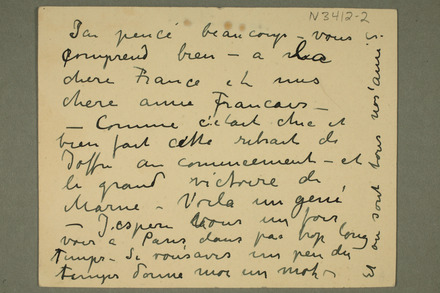 N3412-2
J'ai pencé beaucoup - vous
comprend bien - a la
chere France et mes
chere amie Francais -
- Comme c'était chic et
bien fait cette retrait de
Joffre au commencement - et
le grand victoire de
Marne - Voila un geni,
- J'espere vous un fois
vous a Paris dans pas trop long
temps - Si vous avez un peu du
temps donne moi un mot -
Et ou sont tous nos amie